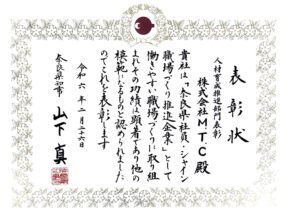 表彰状
人材育成推進部門表彰
株式会社M.T.C 殿
貴社は「奈良県社員・シャイン
職場づくり推進企業」として
働きやすい職場づくりに取り組
まれその功績は顕著であり他の
模範になるものと認められました
のでこれを表彰します
令和六年二月二十六日
奈良県知事 山下真